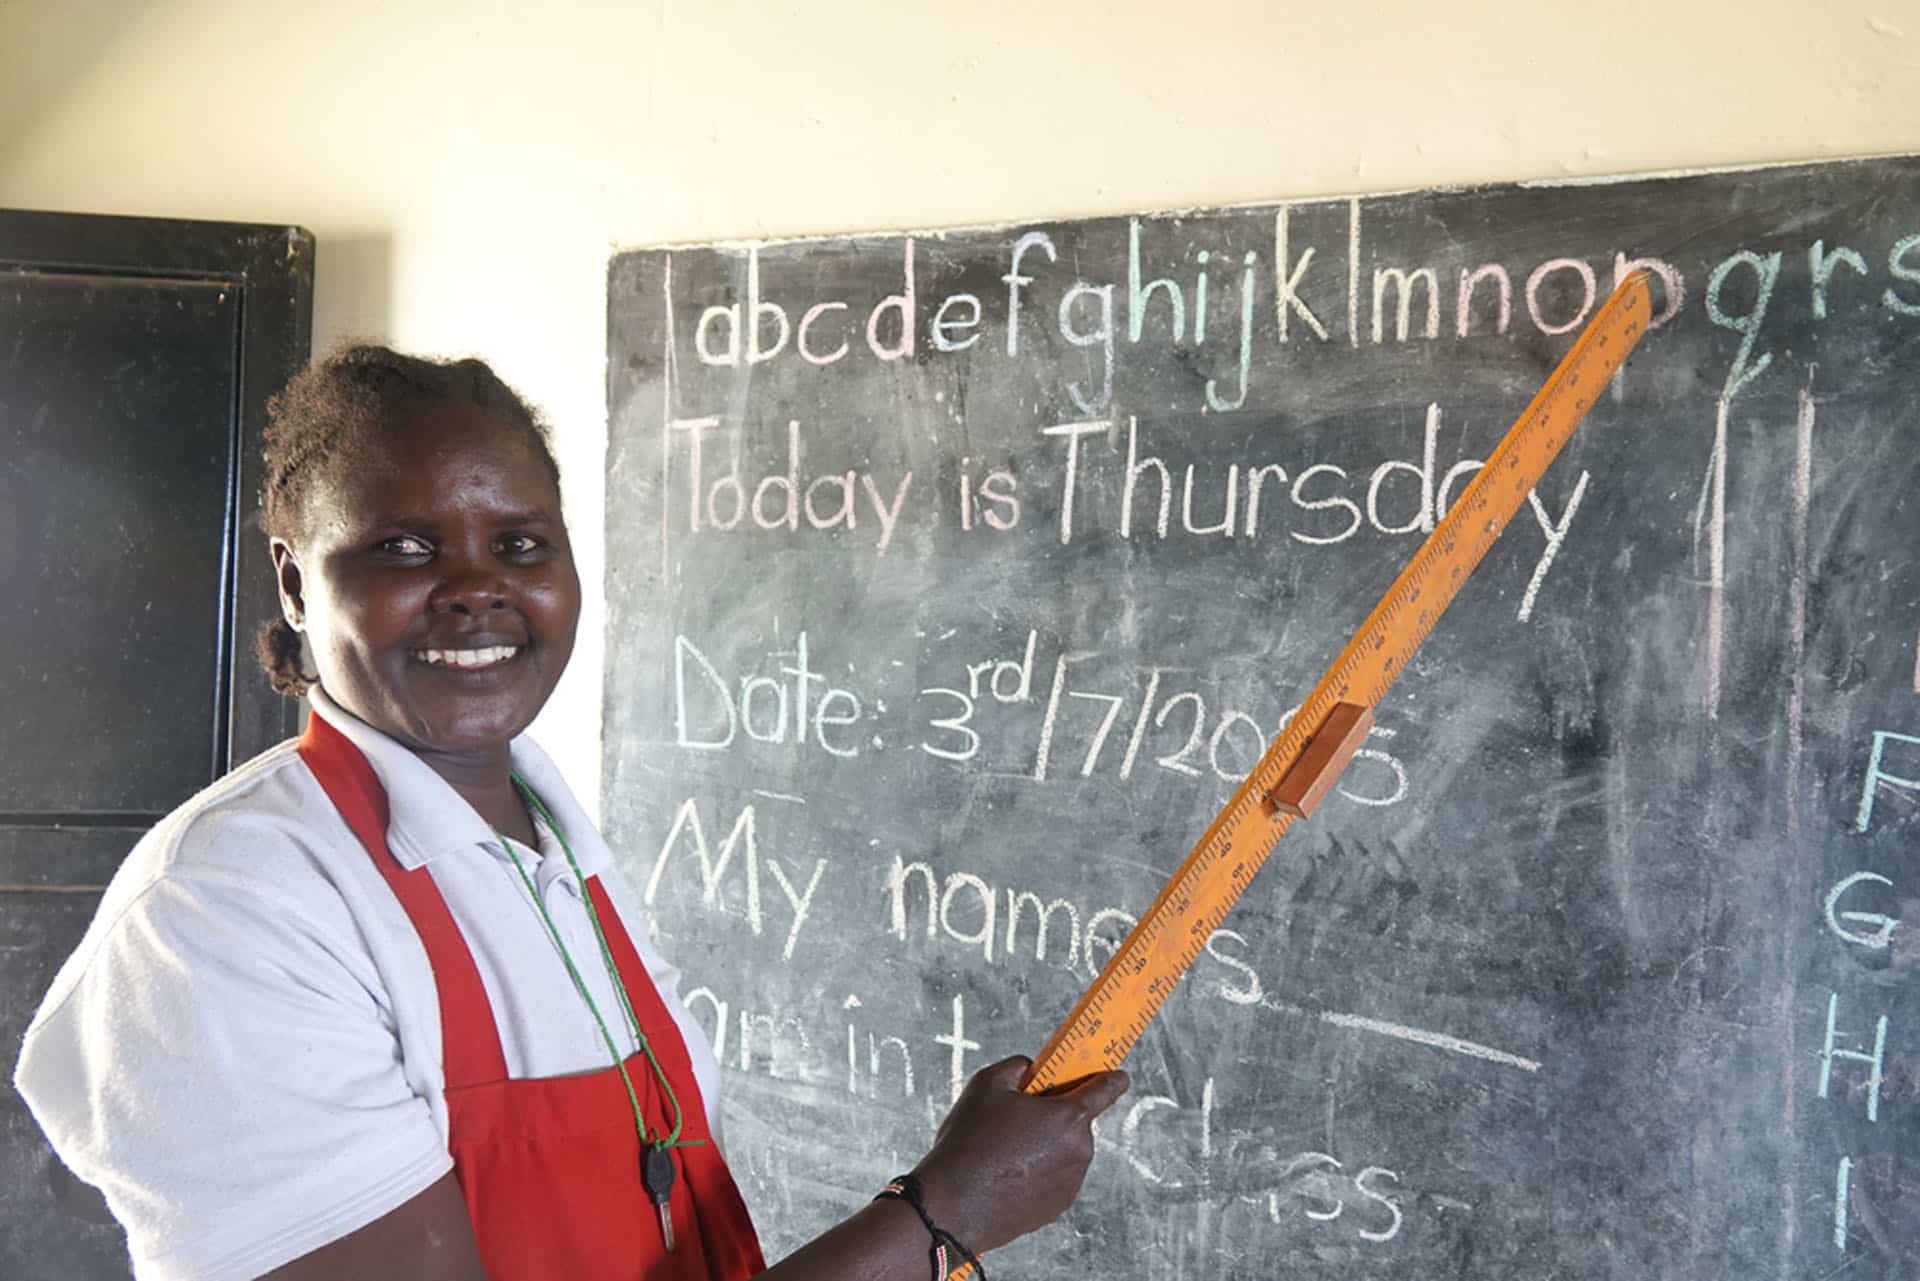 abcdefghijklmnopqrs
Today is Thursday
Date: 3rd/7/2025
My name is
am in t
class
F
G
H
I